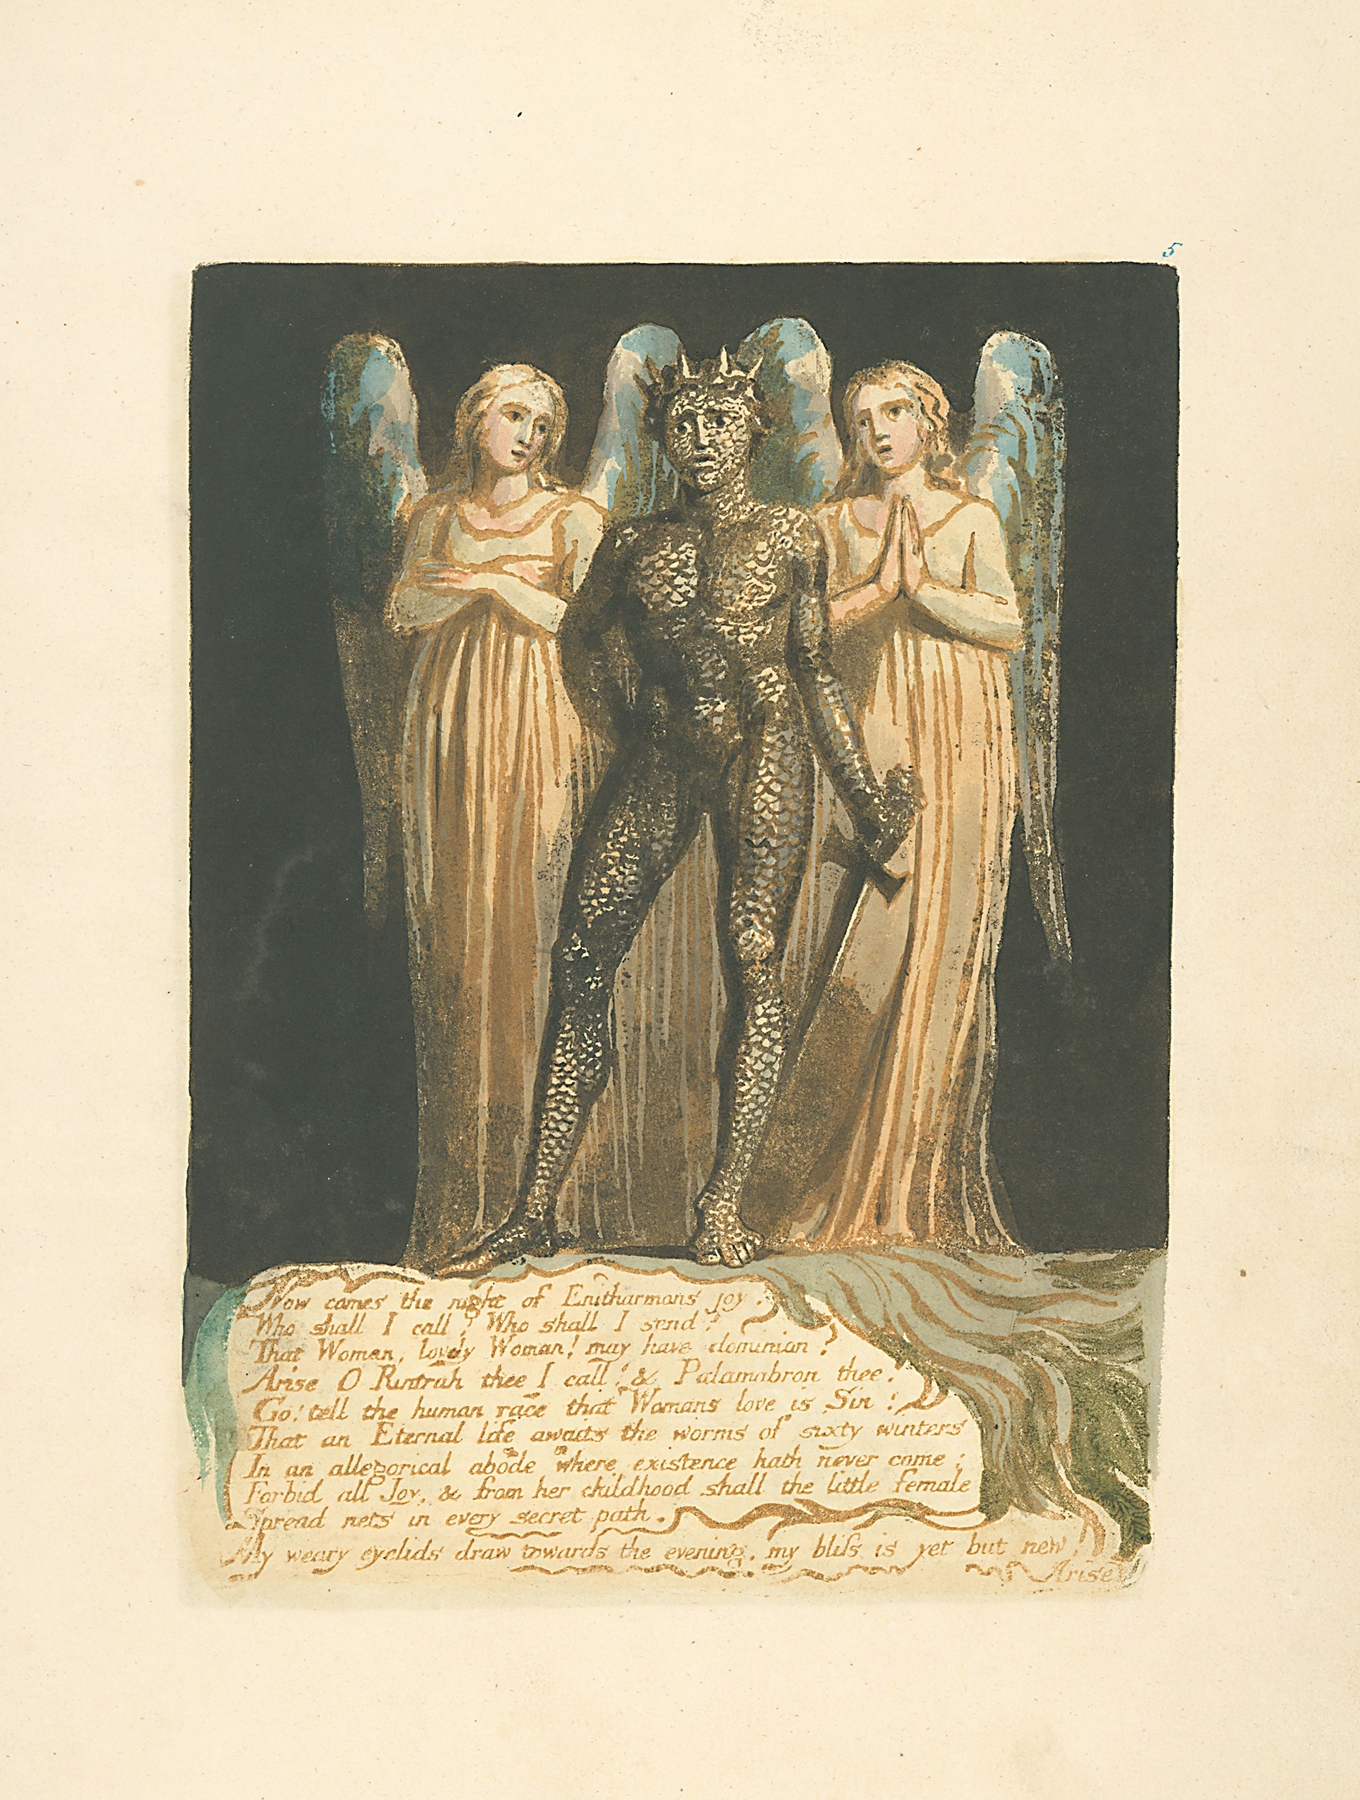 5
Now comes the night of Enitharmons joy.
Who shall I call? Who shall I send?
That Woman, lovely Woman! may have dominion?
Arise O Rintrah thee I call! & Palamabron thee.
Go! tell the human race that Womans love is Sin!
That an Eternal life awaits the worms of sixty winters
In an allegorical abode where existence hath never come;
Forbid all Joy, & from her childhood shall the little female
Spread nets in every secret path.
My weary eyelids draw towards the evening, my bliſs is yet but new.
Arise